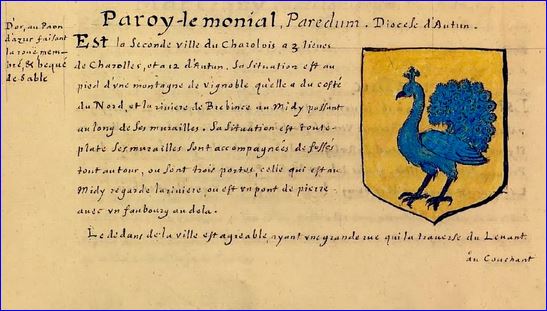 Paroy-le monial, Paredum. Diocese d'Autun.
D'or, au Paon
d'azur faisant
la roüe mem-
bré, & bequé
de sable
Est la Seconde ville du Charolois a 3 lieues
de Charolles, et a 12 d'Autun. Sa situation est au
pied d'vne montagne de vignoble qu'elle a du costé
du Nord, et la riviere de Brebince au Midy passant
au long de ses murailles. Sa situation est toute
plate ses murailles sont accompagnées de fosses
tout autour, ou sont trois portes, celle qui est au
Midy regarde la riviere, ou est vn pont de pierre
avec vn faubourg au dela.
Le dedans de la ville est agreable, ayant vne grande rue qui la traverse du Levant
au Couchant